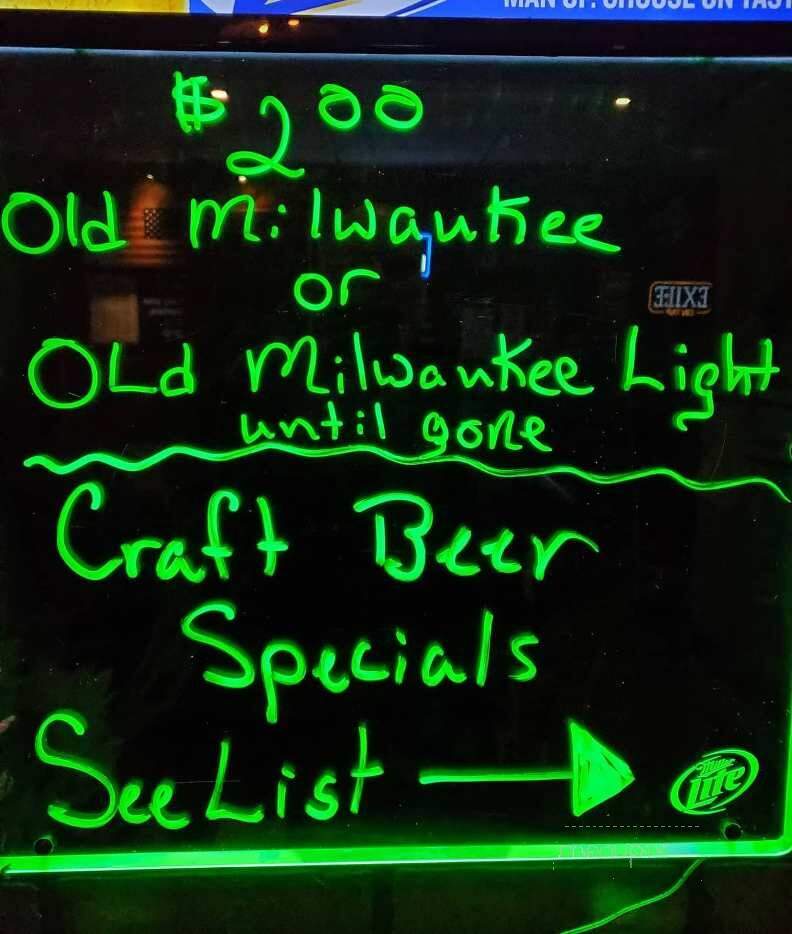 MAN UP. CHOOSE ON TAST
$2.00
Old Milwaukee
or
OLd Milwaukee Light
until gone
Craft Beer
Specials
See List
Miller
Lite